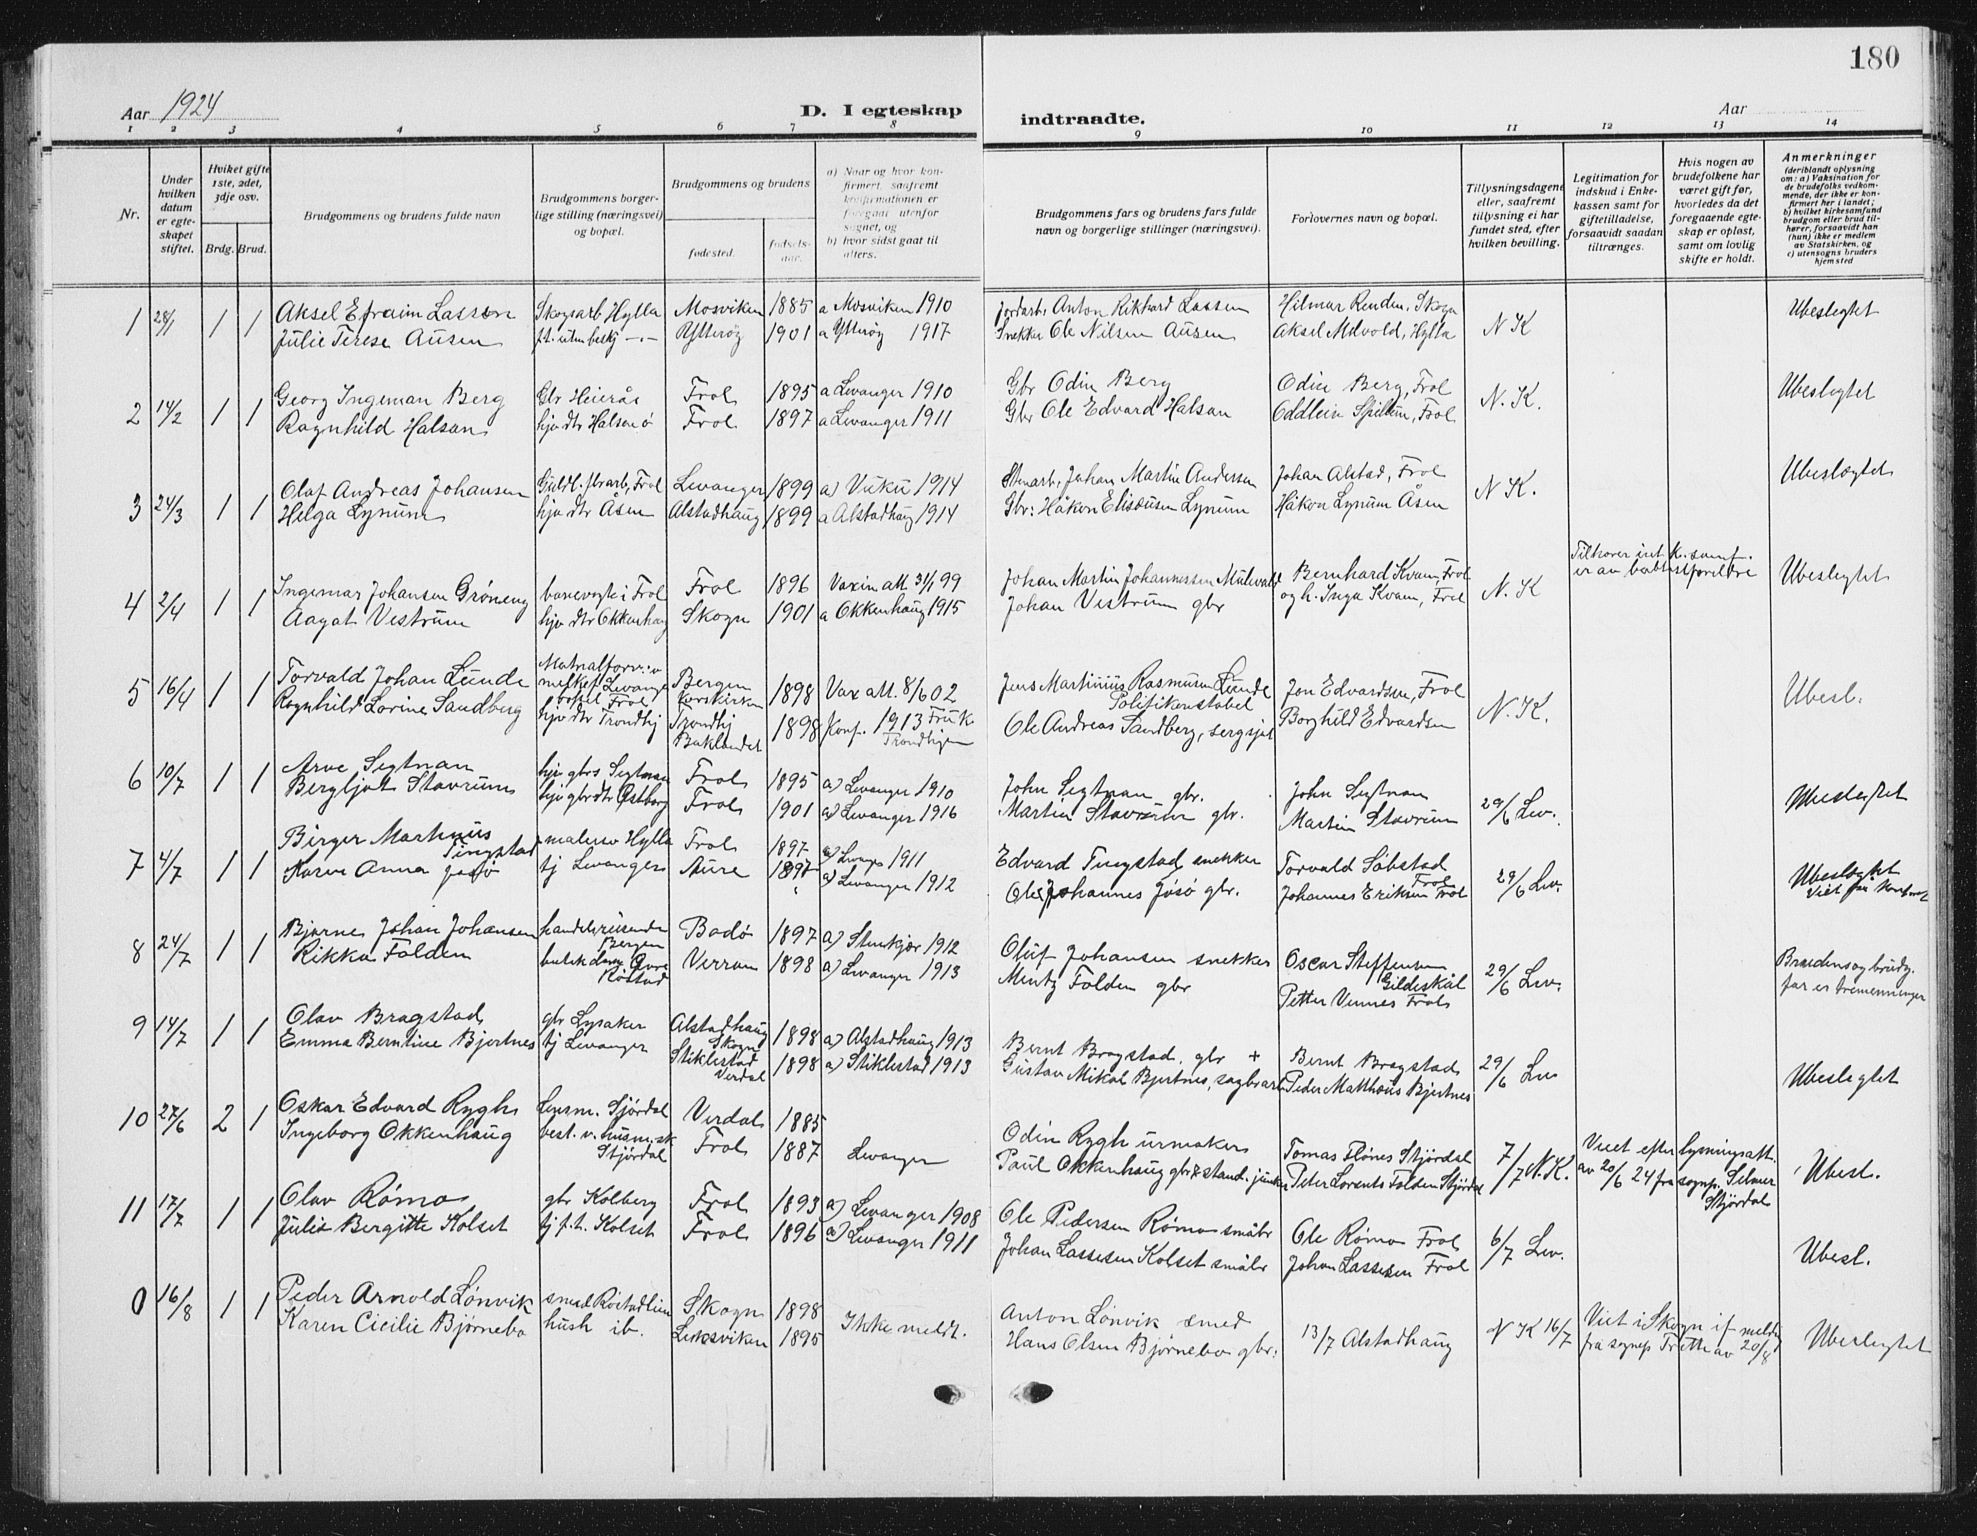 180
Aar 1924
D. I egteskap indtraadte.
Aar
1 2 3 4 5 6 7 8 9 10 11 12 13 14
Nr.
Under hvilken datum er egteskapet stiftet.
Hvilket gifte 1ste, 2det, 3dje osv.
Brdg. Brud.
Brudgommens og brudens fulde navn
Brudgommens borgerlige stilling (næringsvei) og bopæl.
Brudgommens og brudens
fødested.
fødselsaar.
a) Naar og hvor konfirmert, saafremt konfirmationen er foregaat utenfor sognet, og
b) hvor sidst gaat til alters.
Brudgommens fars og brudens fars fulde navn og borgerlige stillinger (næringsvei).
Forlovernes navn og bopæl.
Tillysningsdagene eller, saafremt tillysning ei har fundet sted, efter hvilken bevilling.
Legitimation for indskud i Enkekassen samt for giftetilladelse, forsaavidt saadan tiltrænges.
Hvis nogen av brudefolkene har været gift før, hvorledes da det foregaaende egteskap er opløst, samt om lovlig skifte er holdt.
Anmerkninger (deriblandt oplysning om: a) Vaksination for de brudefolks vedkommende, der ikke er konfirmert her i landet; b) hvilket kirkesamfund brudgom eller brud tilhører, forsaavidt han (hun) ikke er medlem av Statskirken, og c) utensogns bruders hjemsted
1 28/1 1 1 Aksel Efraim Lassen Skogsarb Hylla Mosviken 1885 a Mosviken 1910 Jordarb. Anton Rikhard Lassen Hilmar Renden, Skogn N K Ubeslegtet
Julie Terese Ausen Ytterøy 1901 a Ytterøy 1917 Snekker Ole Nilsen Ausen Aksel Mevold, Hylla
2 14/2 1 1 Georg Ingeman Berg Gbr Heierås Frol 1895 a Levanger 1910 Gbr Odin Berg Odin Berg, Frol N. K. Ubeslegtet
Ragnhild Halsan hjv dtr Halsan ø Frol 1897 a Levanger 1911 Gbr Ole Edvard Halsan Oddlein Spillum, Frol
3 24/3 1 1 Olaf Andreas Johansen Frol Levanger 1899 a) Vuku 1914 Stenarb. Johan Martin Andersen Johan Alstad, Frol N K. Ubeslegtet
Helga Lynum hjv dtr Åsen Alstadhaug 1899 a Alstadhaug 1914 Gbr: Håkon Eliseusen Lynum Håkon Lynum Åsen
4 2/4 1 1 Ingemar Johansen Grøneng banevogte i Frol Frol 1896 Vaxin att 31/1 99 Johan Martin Johannessen Bernhard Kvam, Frol N. K Tilhører int k. samf. er av babtistforeldre Ubeslegtet
Aagat Vestrum hjv dtr Okkenhaug Skogn 1901 a Okkenhaug 1915 Johan Vestrum gbr og h. Inga Kvam, Frol
5 16/4 1 1 Torvald Johan Lunde Levanger bopel Frol Bergen Korskirken 1898 Vax att. 8/6 02 Jens Martinius Rasmusen Lunde Politikonstabel Jon Edvardsen, Frol N. K. Ubesl.
Ragnhild Lorine Sandberg hjv dtr Trondhj Trondhj Baklandet 1898 Konf. 1913 Fruk Trondhjem Ole Andreas Sandberg, sergsjat Borghild Edvardsen
6 10/7 1 1 Arve Segtnan hjv gbrs Segtnan Frol 1895 a) Levanger 1910 John Segtnan gbr. John Segtnan 29/6 Lev. Ubeslegtet
Bergljot Stavrum hjv gbrdtr Østborg Frol 1901 a) Levanger 1916 Martin Stavrum gbr. Martin Stavrum
7 4/7 1 1 Birger Martinus Tingstad malersv Hylla Frol 1897 a) Levanger 1911 Edvard Tingstad snekker Torvald Søbstad Frol 29/6 Lev. Ubeslegtet
Karen Anna Jøsø tj Levanger Aure 1897 a) Levanger 1912 Ole Johannes Jøsø gbr. Johannes Eriksen Frol
8 24/7 1 1 Bjarne Johan Johansen handelsreisende Bergen Bodø 1897 a) Stenkjær 1912 Oluf Johansen snekker Oscar Steffensen Gildeskål 29/6 Lev. Brudens og brudg. far er tremenninger
Rikka Folden Røstad Verran 1898 a) Levanger 1913 Mentz Folden gbr Petter Vennes Frol
9 14/7 1 1 Olav Bragstad gbr Lysaker Alstadhaug Skogn 1898 a) Alstadhaug 1913 Bernt Bragstad, gbr + Bernt Bragstad 29/6 Lev Ubeslegtet
Emma Berntine Bjertnes tj Levanger Stiklestad Verdal 1898 a) Stiklestad 1913 Gustav Mikal Bjertnes, sagbrarb Peder Matthæus Bjertnes
10 27/6 2 1 Oskar Edvard Rygh Lensm. Stjørdal Verdal 1885 Odin Rygh urmaker Tomas Flønes Stjørdal 7/7 N. K. Viet efter lysningsatt. av 20/6 24 fra sognp. Selmer Stjørdal Ubesl.
Ingeborg Okkenhaug best. v. husm.sk Stjørdal Frol 1887 Levanger Paul Okkenhaug gbr & stand. junker Peter Lorents Folden Stjørdal
11 17/7 1 1 Olav Rømo gbr Kolberg Frol 1893 a) Levanger 1908 Ole Pedersen Rømo småbr Ole Rømo Frol 6/7 Lev. Ubesl.
Julie Bergitte Kolset tj f.t. Kolset Frol 1896 a) Levanger 1911 Johan Lassesen Kolset småbr Johan Lassesen Frol
0 16/8 1 1 Peder Arnold Lønvik smed Røstadlien Skogn 1898 Ikke meldt. Anton Lønvik smed 13/7 Alstadhaug N K 16/7 Viet i Skogn if melding fra sognep Freth av 20/8 Ubeslegtet
Karen Cicilie Bjørnebo hush ib. Leksviken 1895 Hans Olsen Bjørnebo gbr.